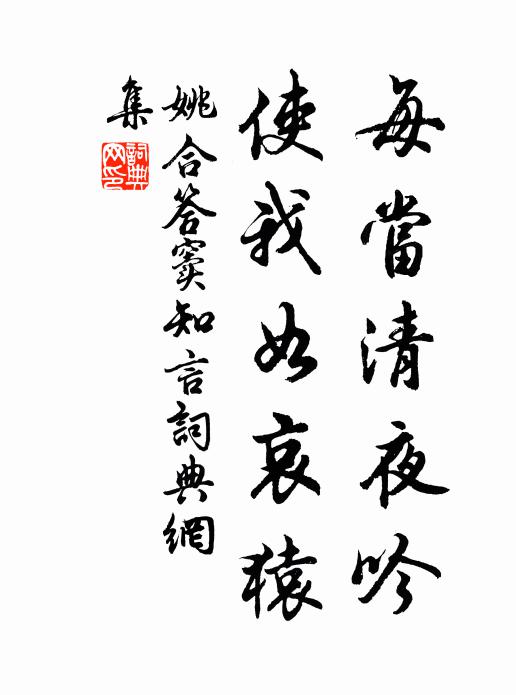 每當清夜吟
使我如哀猿
姚合答竇知言詞典網
集
詞典
网印